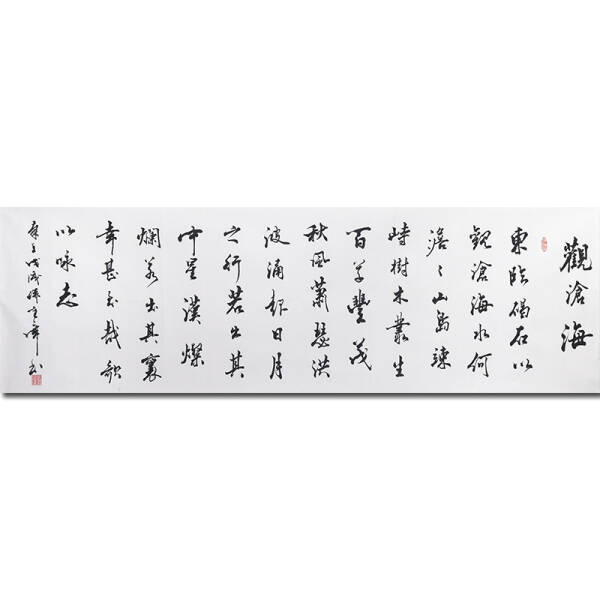 觀滄海
東臨碣石以
觀滄海水何
澹〻山島竦
峙樹木叢生
百草豐茂
秋風蕭瑟洪
波涌起日月
之行若出其
中星漢燦
爛若出其裏
幸甚至哉歌
以咏志